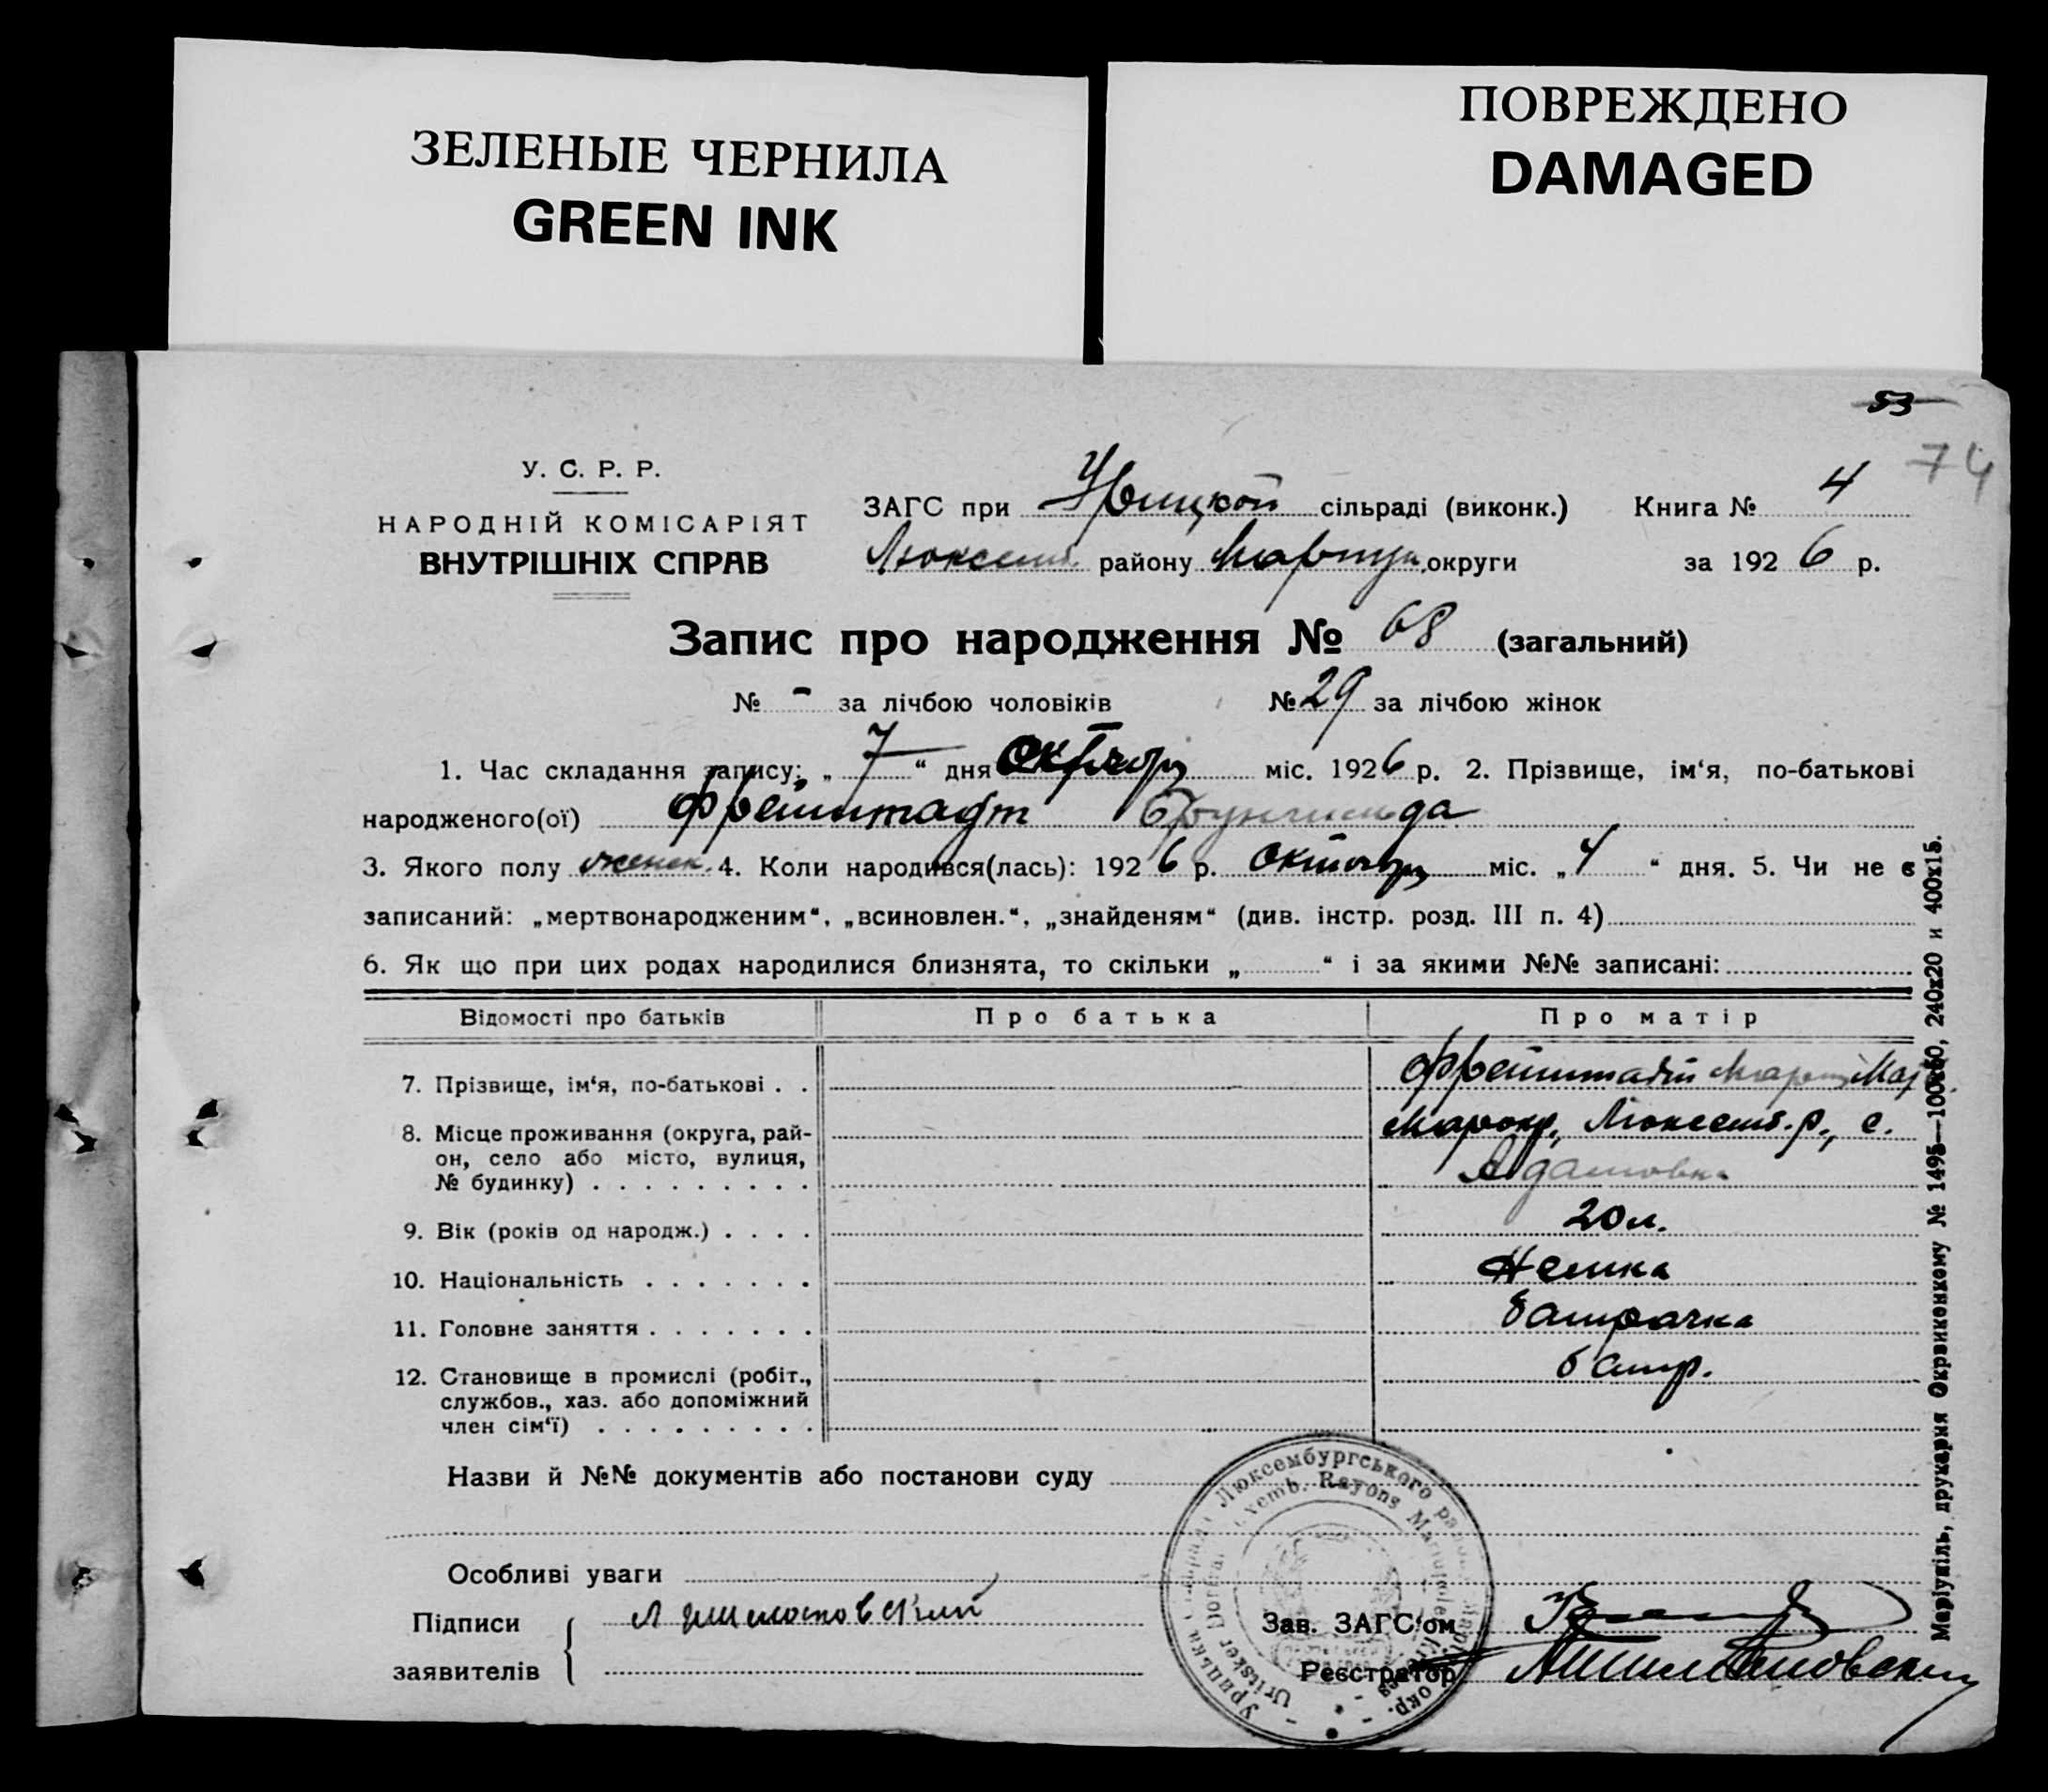 ЗЕЛЕНЫЕ ЧЕРНИЛА
GREEN INK
ПОВРЕЖДЕНО
DAMAGED
53
74
У. С. Р. Р.
НАРОДНІЙ КОМІСАРІЯТ
ВНУТРІШНІХ СПРАВ
ЗАГС при Урицкой сільраді (виконк.) Книга № 4
Люксемб. району Мариуп. округи за 1926 р.
Запис про народження № 68 (загальний)
№ - за лічбою чоловіків № 29 за лічбою жінок
1. Час складання запису: „ 7 “ дня октября міс. 1926 р. 2. Прізвище, ім‘я, по-батькові
народженого(ої) Фрейштадт Брунгильда
3. Якого полу женск. 4. Коли народився(лась): 1926 р. октября міс. „ 4 “ дня. 5. Чи не є
записаний: „мертвонародженим“, „всиновлен.“, „знайденям“ (див. інстр. розд. III п. 4)
6. Як що при цих родах народилися близнята, то скільки „ “ і за якими №№ записані:
Відомості про батьків Про батька Про матір
7. Прізвище, ім‘я, по-батькові . . Фрейштадт Мария
8. Місце проживання (округа, рай- Мар окр., Люксемб. р., с.
он, село або місто, вулиця,
№ будинку) . . . . . . . . .
9. Вік (років од народж.) . . . . 20 л.
10. Національність . . . . . . . Немка
11. Головне заняття . . . . . . . батрачка
12. Становище в промислі (робіт., батр.
службов., хаз. або допоміжний
член сім‘ї) . . . . . . . . .
Назви й №№ документів або постанови суду
Особливі уваги
Підписи
заявителів
Зав. ЗАГС‘ом
Реєстратор
Люксембургського
Rayons
Uritsker
Маріупіль, друкарня Окрвиконкому № 1495—100х60, 240х20 и 400х15.